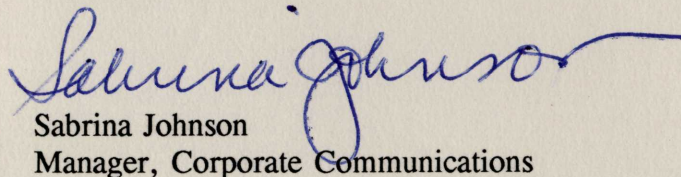 Sabrina Johnson
Sabrina Johnson
Manager, Corporate Communications